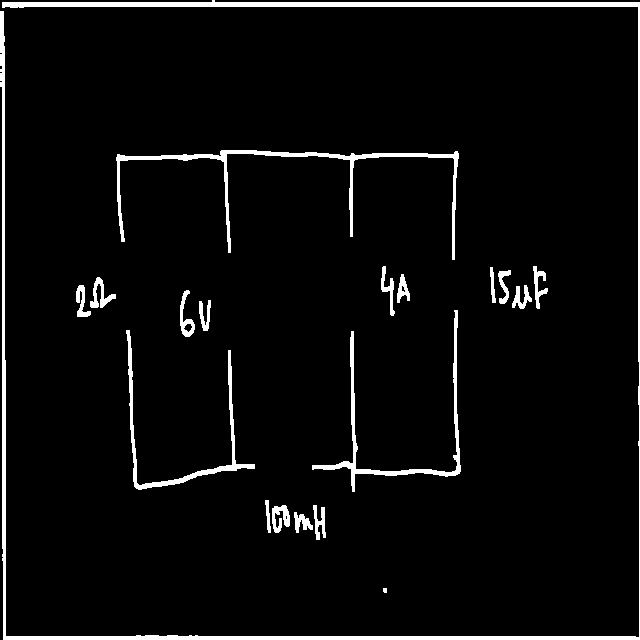 2Ω
6V
4A
15μF
100mH